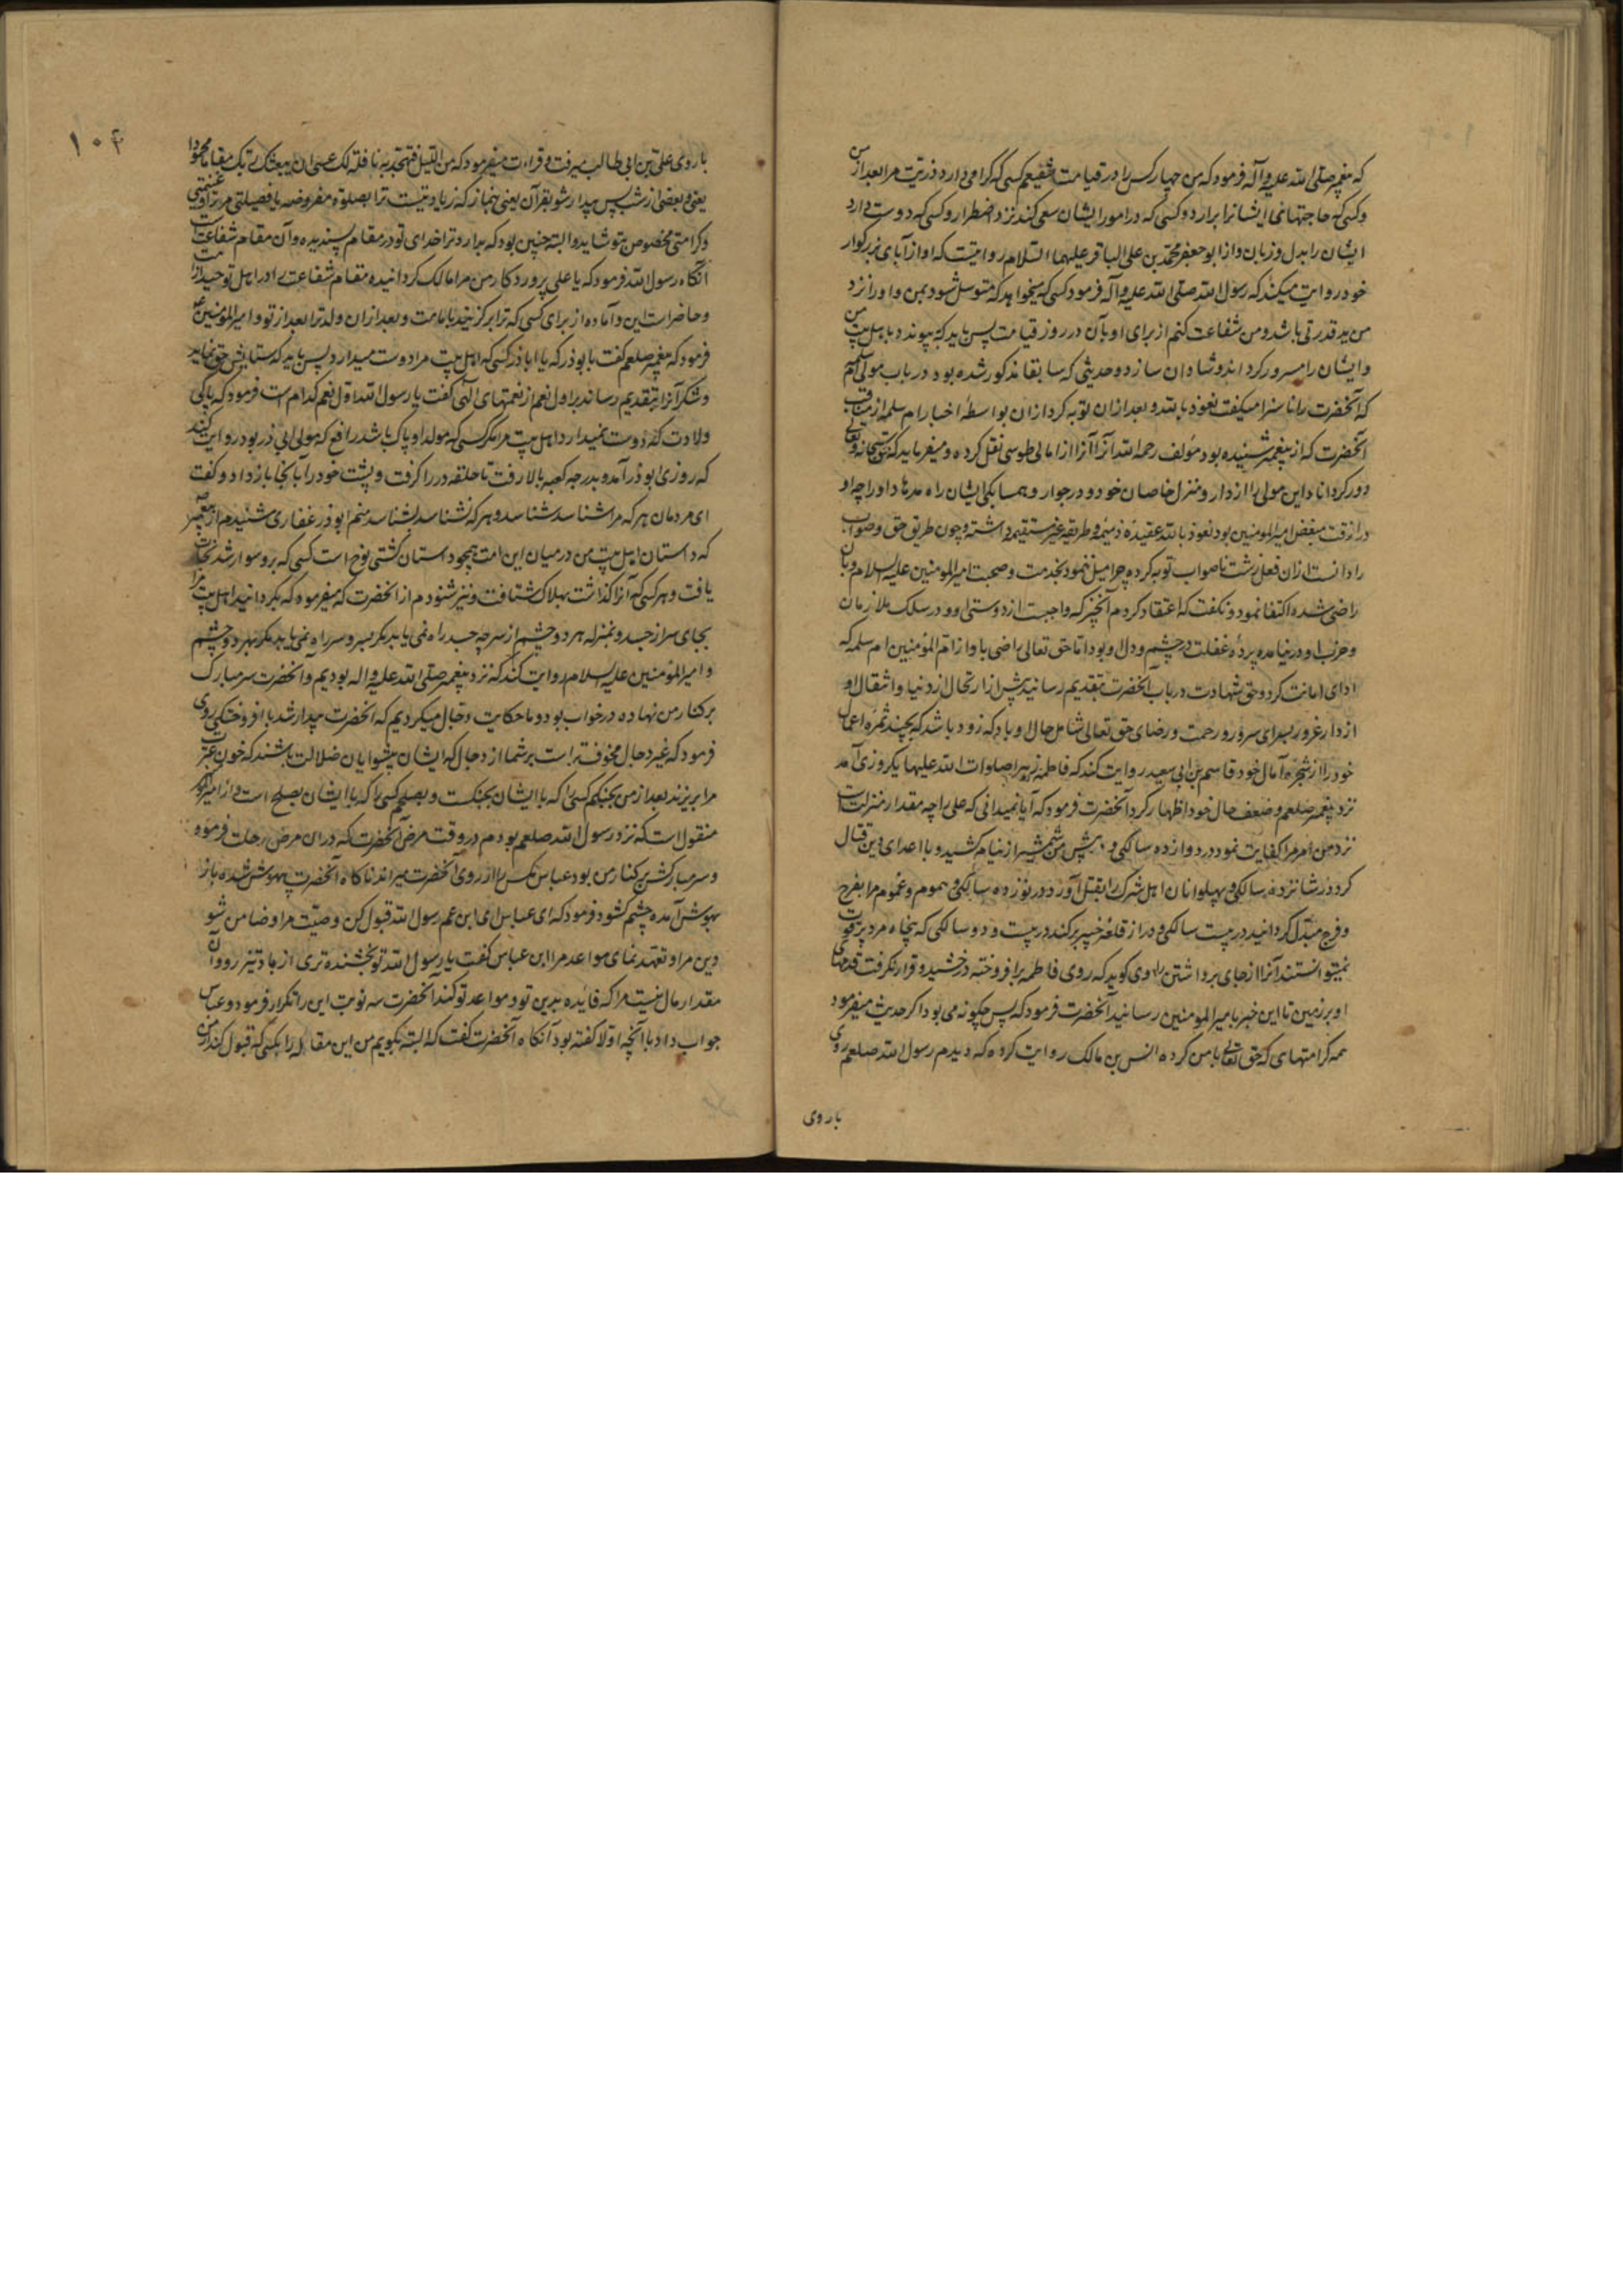 که پیغمبر صلی الله علیه و آله فرمود که من چهار کس را در قیامت شفیعم کسی که گرامی دارد ذریت مرا بعد از من
و کسی که حاجتهای ایشانرا برارد و کسی که در امور ایشان سعی کند نزد اضطرار و کسی که دوست دارد
ایشان را بدل و زبان و از ابو جعفر محمد بن علی الباقر علیهما السلام روایتست که او از آبای بزرگوار
خود روایت میکند که رسول الله صلی الله علیه و آله فرمود کسی که میخواهد که متوسل شود بمن و او را نزد
من ید قدرتی باشد و من شفاعت کنم از برای او بآن در روز قیامت پس باید که پیوندد باهل بیت من
و ایشان را مسرور گرداند و شادان سازد و حدیثی که سابقا مذکور شده بود در باب مولی ام سلمه
که آنحضرت را ناسزا میگفت نعوذ بالله و بعد از ان توبه کرد از ان بواسطه اخبار ام سلمه از مناقب
آنحضرت که از پیغمبر شنیده بود مؤلف رحمه الله آنرا از امالی طوسی نقل کرده و میفرماید که حق سبحانه و تعالی
دور گرداناد این مولی را از دار و منزل خاصان خود و در جوار و همسایگی ایشان راه مدهاد او را چه او
در ان وقت مبغض امیر المومنین بود نعوذ بالله عقیده ذمیمه و طریقه غیر مستقیمه داشته و چون طریق حق و صواب
را دانست از ان فعل زشت ناصواب توبه کرده چرا میل ننمود بخدمت و صحبت امیر المومنین علیه السلام و بان
راضی شده اکتفا نمود و نگفت که اعتقاد کردم آنچیز که واجبست از دوستی او و در سلک ملازمان
و حزب او در نیامده پرده غفلت در چشم و دل او بود اما حق تعالی راضی باد از ام المؤمنین ام سلمه که
ادای امانت کرد و حق شهادت در باب آنحضرت بتقدیم رسانید پیش از ارتحال از دنیا و انتقال او
از دار غرور بسرای سرور و رحمت و رضای حق تعالی شامل حال او باد که زود باشد که بچیند ثمره اعمال
خود را از شجره آمال خود قاسم بن ابی سعید روایت کند که فاطمه زهرا صلوات الله علیها یکروزی آمد
نزد پیغمبر صلعم و ضعف حال خود اظهار کرد آنحضرت فرمود که آیا نمیدانی که علی را چه مقدار منزلت است
نزد من امر مرا کفایت نمود در دوازده سالگی و در پیش من شمشیر از نیام کشید و با اعدای دین قتال
کرد در شانزده سالگی و پهلوانان اهل شرک را بقتل آورد در نوزده سالگی و هموم و غموم مرا بفرح
و فرج مبدل گردانید در بیست سالگی و در از قلعه خیبر برکند در بیست و دو سالگی که پنجاه مرد پر قوت
نمیتوانستند آنرا از جای برداشتن راوی گوید که روی فاطمه برافروخته درخشید و قرار نگرفت قدمهای
او بر زمین تا این خبر بامیر المومنین رسانید آنحضرت فرمود که پس چگونه می بود اگر حدیث میفرمود
همه کرامتهای که حق تعالی با من کرده انس بن مالک روایت کرده که دیدم رسول الله صلعم روی
باروی
۱۰۴
باروی علی بن ابی طالب میرفت و قراءت میفرمود که من اللیل فتهجد به نافلة لک عسی ان یبعثک ربک مقاما محمودا
یعنی و بعضی از شب پس بیدار شو بقرآن یعنی نماز که زیادتیست ترا بصلوة مفروضه یا فضیلتی مر ترا و غنیمتی
و کرامتی مخصوص بتو شاید و البته چنین بود که برارد ترا خدای تو در مقام پسندیده و آن مقام شفاعت است
آنگاه رسول الله فرمود که یا علی پروردکار من مرا مالک گردانیده مقام شفاعت را در اهل توحید از امت
و حاضر است این و آماده از برای کسی که ترا برگزیند بامامت و بعد از ان ولد ترا بعد از تو و امیر المؤمنین ع
فرمود که پیغمبر صلعم گفت با بوذر که یا اباذر کسی که اهل بیت مرا دوست میدارد پس باید که ستایش حق نماید
و شکر آنرا بتقدیم رساند بر اول نعم از نعمتهای الهی گفت یا رسول الله اول نعم کدام است فرمود که پاکی
ولادت که دوست نمیدارد اهل بیت مرا مگر کسی که مولد او پاک باشد رافع که مولی ابی ذر بود روایت کند
که روزی ابوذر آمد و بدرجه کعبه بالا رفت تا حلقه در را گرفت و پشت خود را بآنجا باز داد و گفت
ای مردمان هر که مرا شناسد شناسد و هر که نشناسد بشناسد منم ابوذر غفاری شنیدم از پیغمبر
که داستان اهل بیت من در میان این امت همچو داستان کشتی نوح است کسی که برو سوار شد نجات
یافت و هر کسی که آنرا گذاشت بهلاک شتافت و نیز شنودم از آنحضرت که میفرمود که بگردانید اهل بیت مرا
بجای سر از جسد و بمنزله هر دو چشم از سر چه جسد راه نمی یابد مگر بسر و سر راه نمی یابد مگر بهر دو چشم
و امیر المؤمنین علیه السلام روایت کند که نزد پیغمبر صلی الله علیه و اله بودیم و آنحضرت سر مبارک
بر کنار من نهاده در خواب بود و ما حکایت دجال میکردیم که آنحضرت بیدار شد با افروختگی روی
فرمود که غیر دجال مخوفتر است بر شما از دجال که ایشان پیشوایان ضلالت باشند که خون عترت
مرا بریزند بعد از من بجنگم کسی را که با ایشان بجنگست و بصلحم کسی را که با ایشان بصلح است و از امیر المومنین
منقول است که نزد رسول الله صلعم بودم در وقت مرض آنحضرت که در ان مرض رحلت فرمود
و سر مبارکش بر کنار من بود عباس مگس را از روی آنحضرت میراند ناگاه آنحضرت بیهوش شده باز
بهوش آمده چشم گشود فرمود که ای عباس ای ابن عم رسول الله قبول کن وصیت مرا و ضامن شو
دین مرا و تعهد نمای مواعد مرا ابن عباس گفت یا رسول الله تو بخشنده تری از باد تیز رو و آن
مقدار مال نیست مرا که فائده بدین تو و مواعد تو کند آنحضرت سه نوبت این را تکرار فرمود و عباس
جواب داد با آنچه اولا گفته بود آنگاه آنحضرت گفت که البته بگویم من این مقاله را بکسی که قبول کند از من